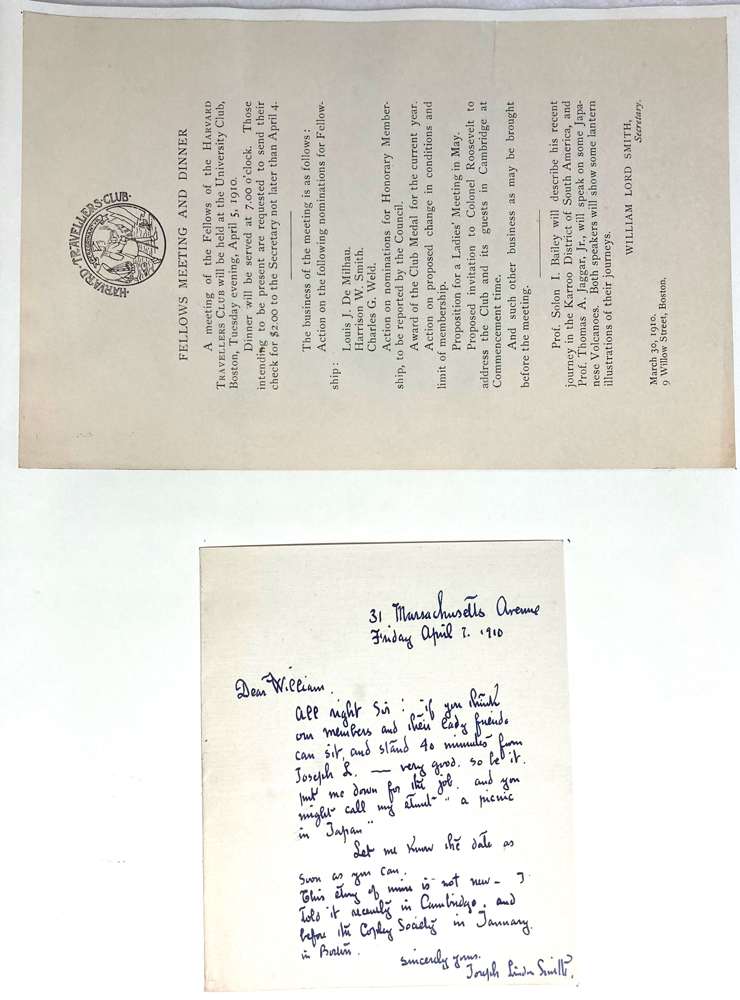 ·HARVARD·TRAVELLERS·CLUB·
FELLOWS MEETING AND DINNER
A meeting of the Fellows of the HARVARD
TRAVELLERS CLUB will be held at the University Club,
Boston, Tuesday evening, April 5, 1910.
Dinner will be served at 7.00 o'clock. Those
intending to be present are requested to send their
check for $2.00 to the Secretary not later than April 4.
The business of the meeting is as follows:
Action on the following nominations for Fellow-
ship:
Louis J. De Milhau.
Harrison W. Smith.
Charles G. Weld.
Action on nominations for Honorary Member-
ship, to be reported by the Council.
Award of the Club Medal for the current year.
Action on proposed change in conditions and
limit of membership.
Proposition for a Ladies' Meeting in May.
Proposed invitation to Colonel Roosevelt to
address the Club and its guests in Cambridge at
Commencement time.
And such other business as may be brought
before the meeting.
Prof. Solon I. Bailey will describe his recent
journey in the Karroo District of South America, and
Prof. Thomas A. Jaggar, Jr., will speak on some Japa-
nese Volcanoes. Both speakers will show some lantern
illustrations of their journeys.
WILLIAM LORD SMITH,
Secretary.
March 30, 1910.
9 Willow Street, Boston.
31 Massachusetts Avenue
Friday April 7. 1910
Dear William.
All right Sir! if you think
our members and their lady friends
can sit, and stand 40 minutes from
Joseph L. — very good. so be it.
put me down for the job. and you
might call my stunt "a picnic
in Japan"
Let me know the date as
soon as you can.
This story of mine is not new - I
told it recently in Cambridge. and
before the Copley Society in January.
in Boston.
sincerely yours.
Joseph Lindon Smith.